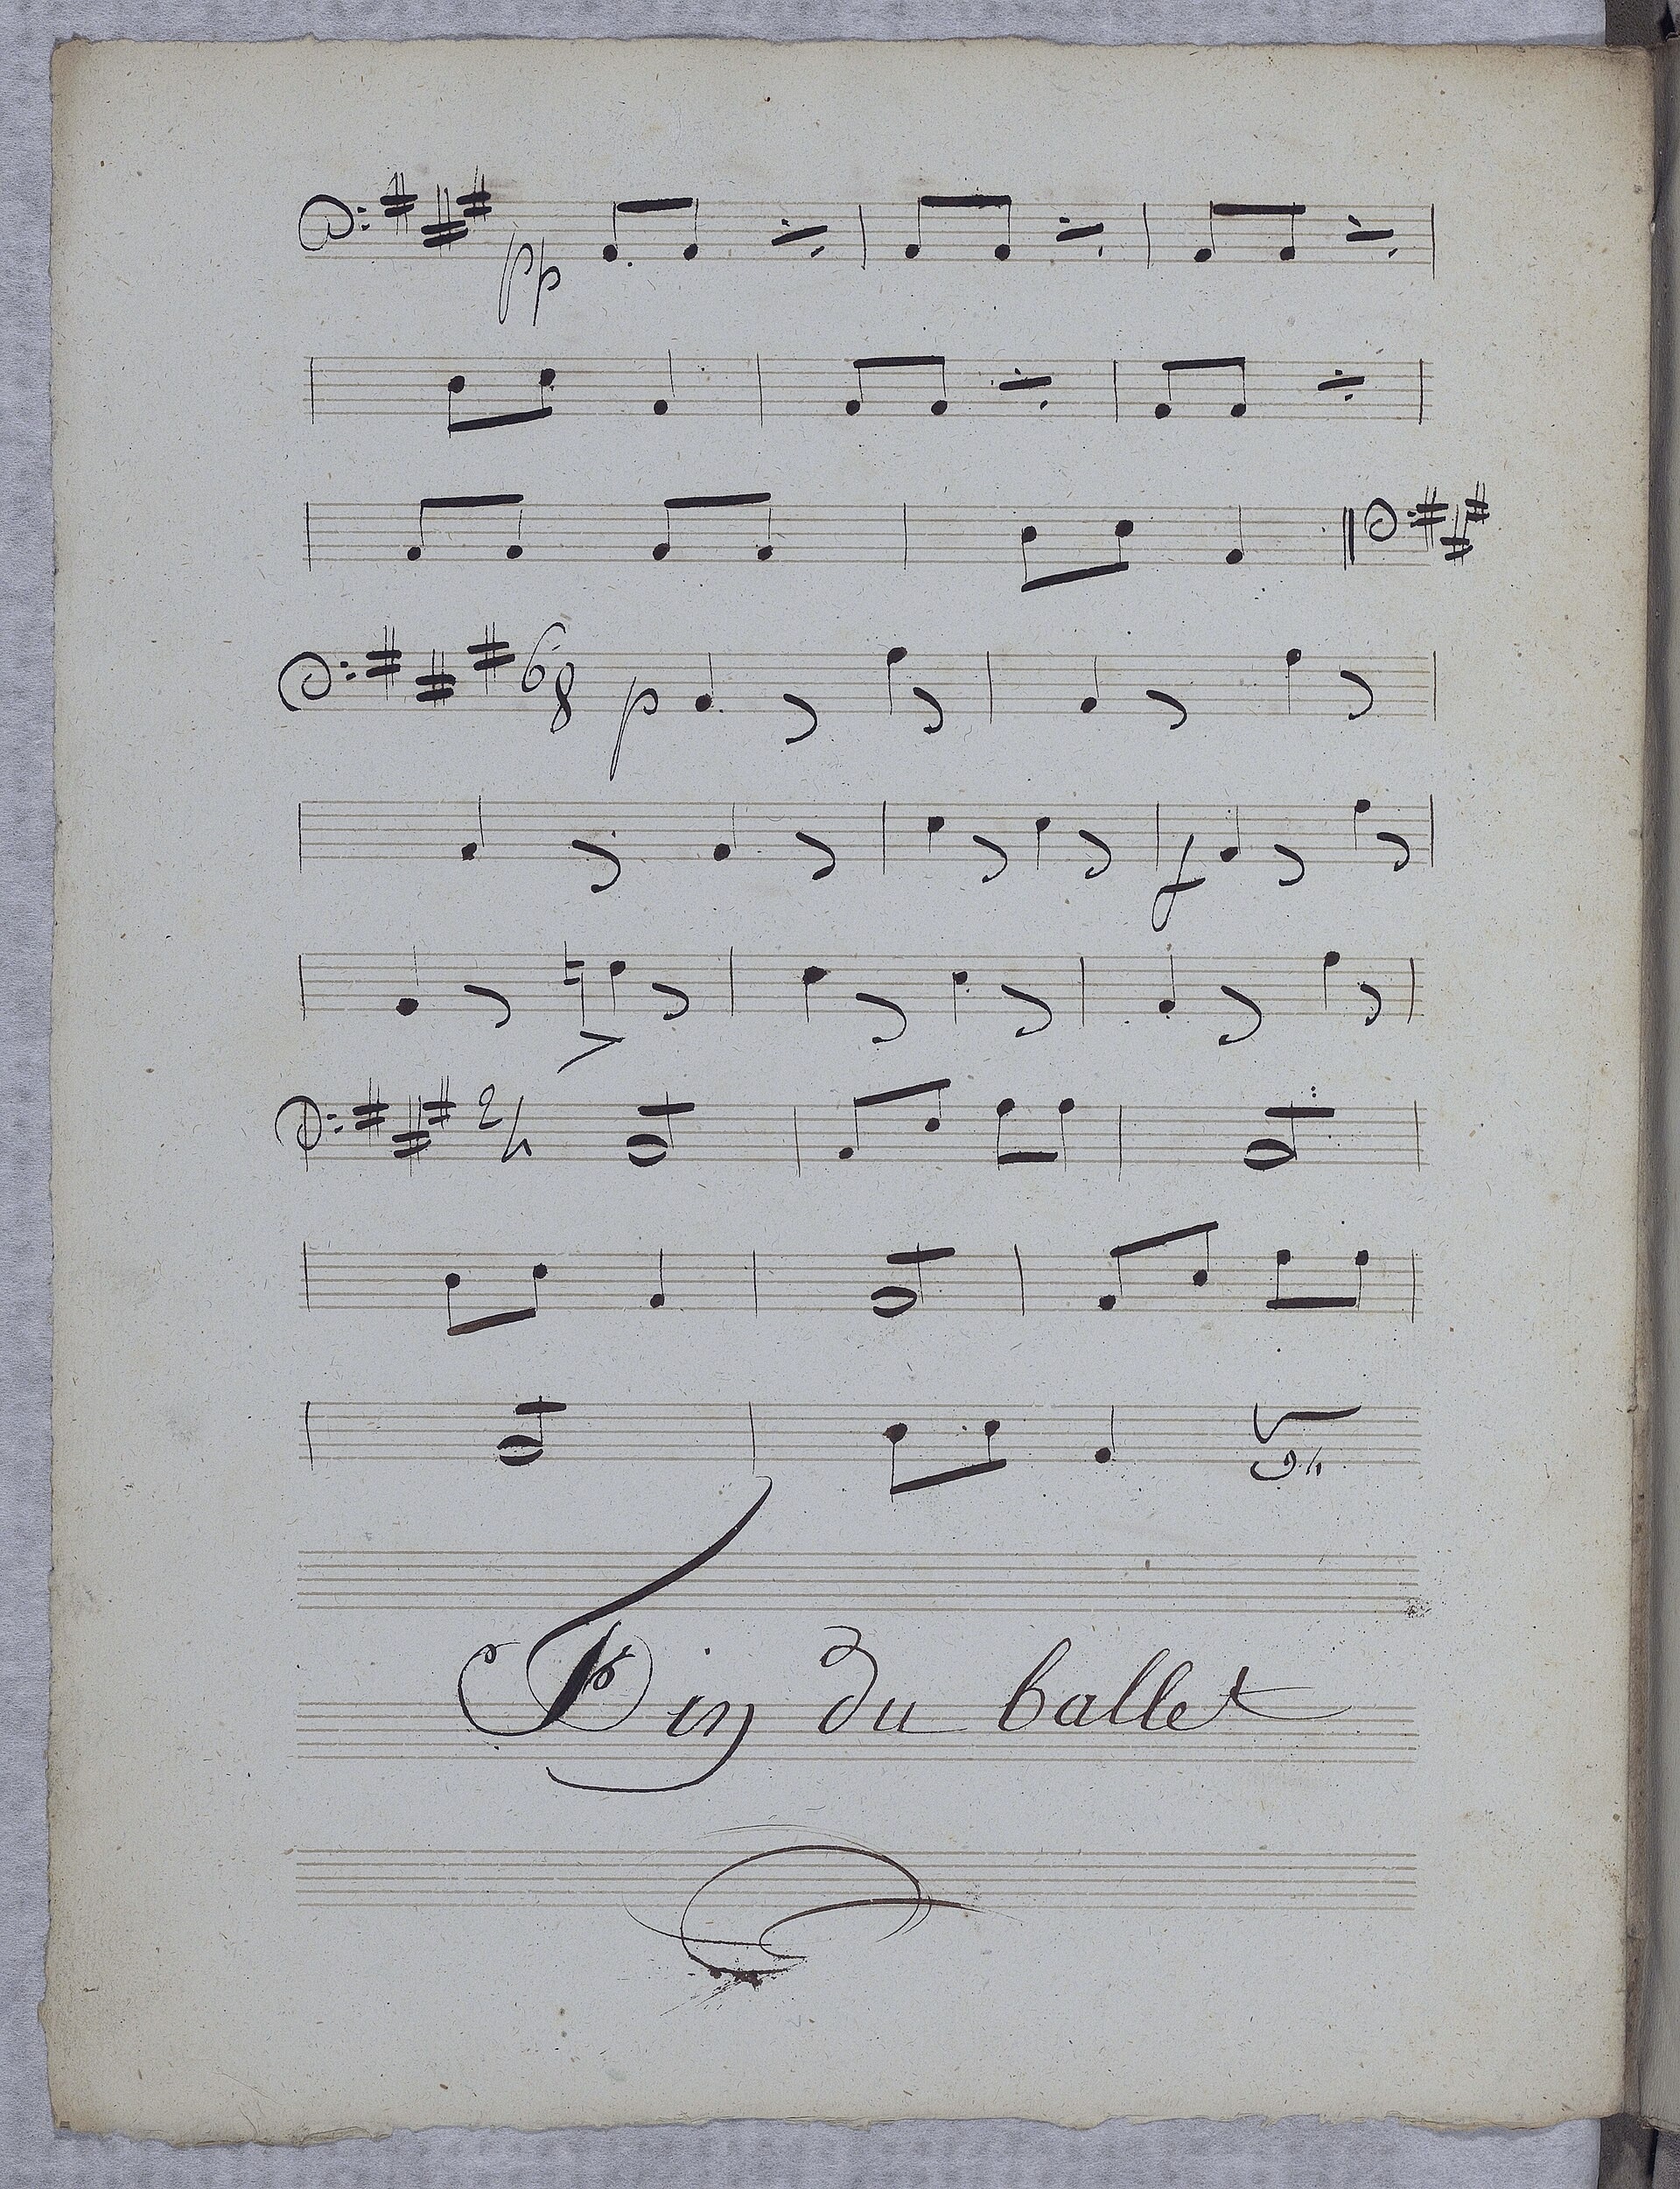 pp
6
8
p
f
2/4
Fin du ballet